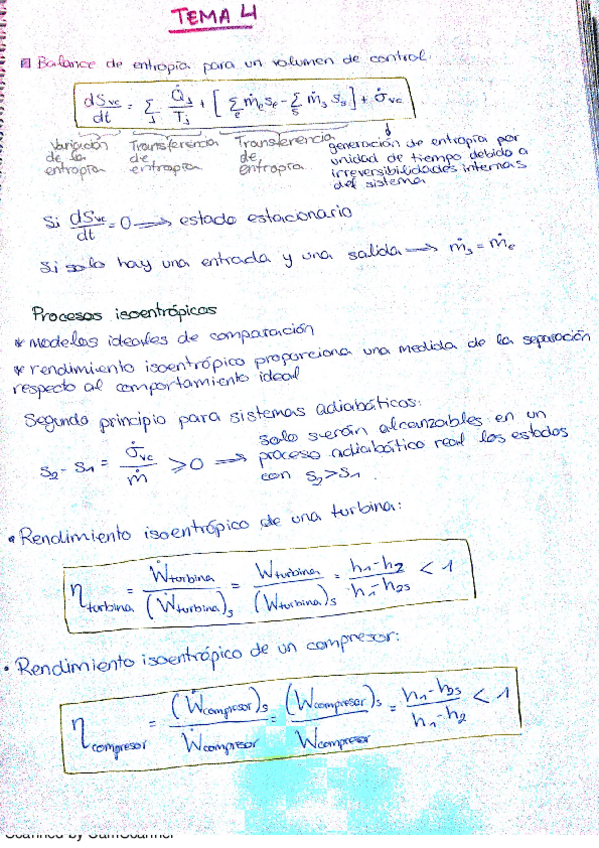 TEMA 4
Balance de entropía para un volumen de control:
dSvc/dt = Σj Q̇j/Tj + [Σe ṁe se - Σs ṁs ss] + σ̇vc
Variación de la entropía
Transferencia de entropía
Transferencia de entropía
generación de entropía por
unidad de tiempo debido a
irreversibilidades internas
del sistema
Si dSvc/dt = 0 → estado estacionario
Si solo hay una entrada y una salida → ṁs = ṁe
Procesos isoentrópicos
* modelos ideales de comparación
* rendimiento isoentrópico proporciona una medida de la separación
respecto al comportamiento ideal
Segundo principio para sistemas adiabáticos:
s2 - s1 = σ̇vc/ṁ ⩾ 0 ⟹ solo serán alcanzables en un
proceso adiabático real los estados
con s2 > s1.
• Rendimiento isoentrópico de una turbina:
ηturbina = Ẇturbina/(Ẇturbina)s = Wturbina/(Wturbina)s = h1-h2/h1-h2s < 1
• Rendimiento isoentrópico de un compresor:
ηcompresor = (Ẇcompresor)s/Ẇcompresor = (Wcompresor)s/Wcompresor = h1-h2s/h1-h2 < 1
Scanned by CamScanner